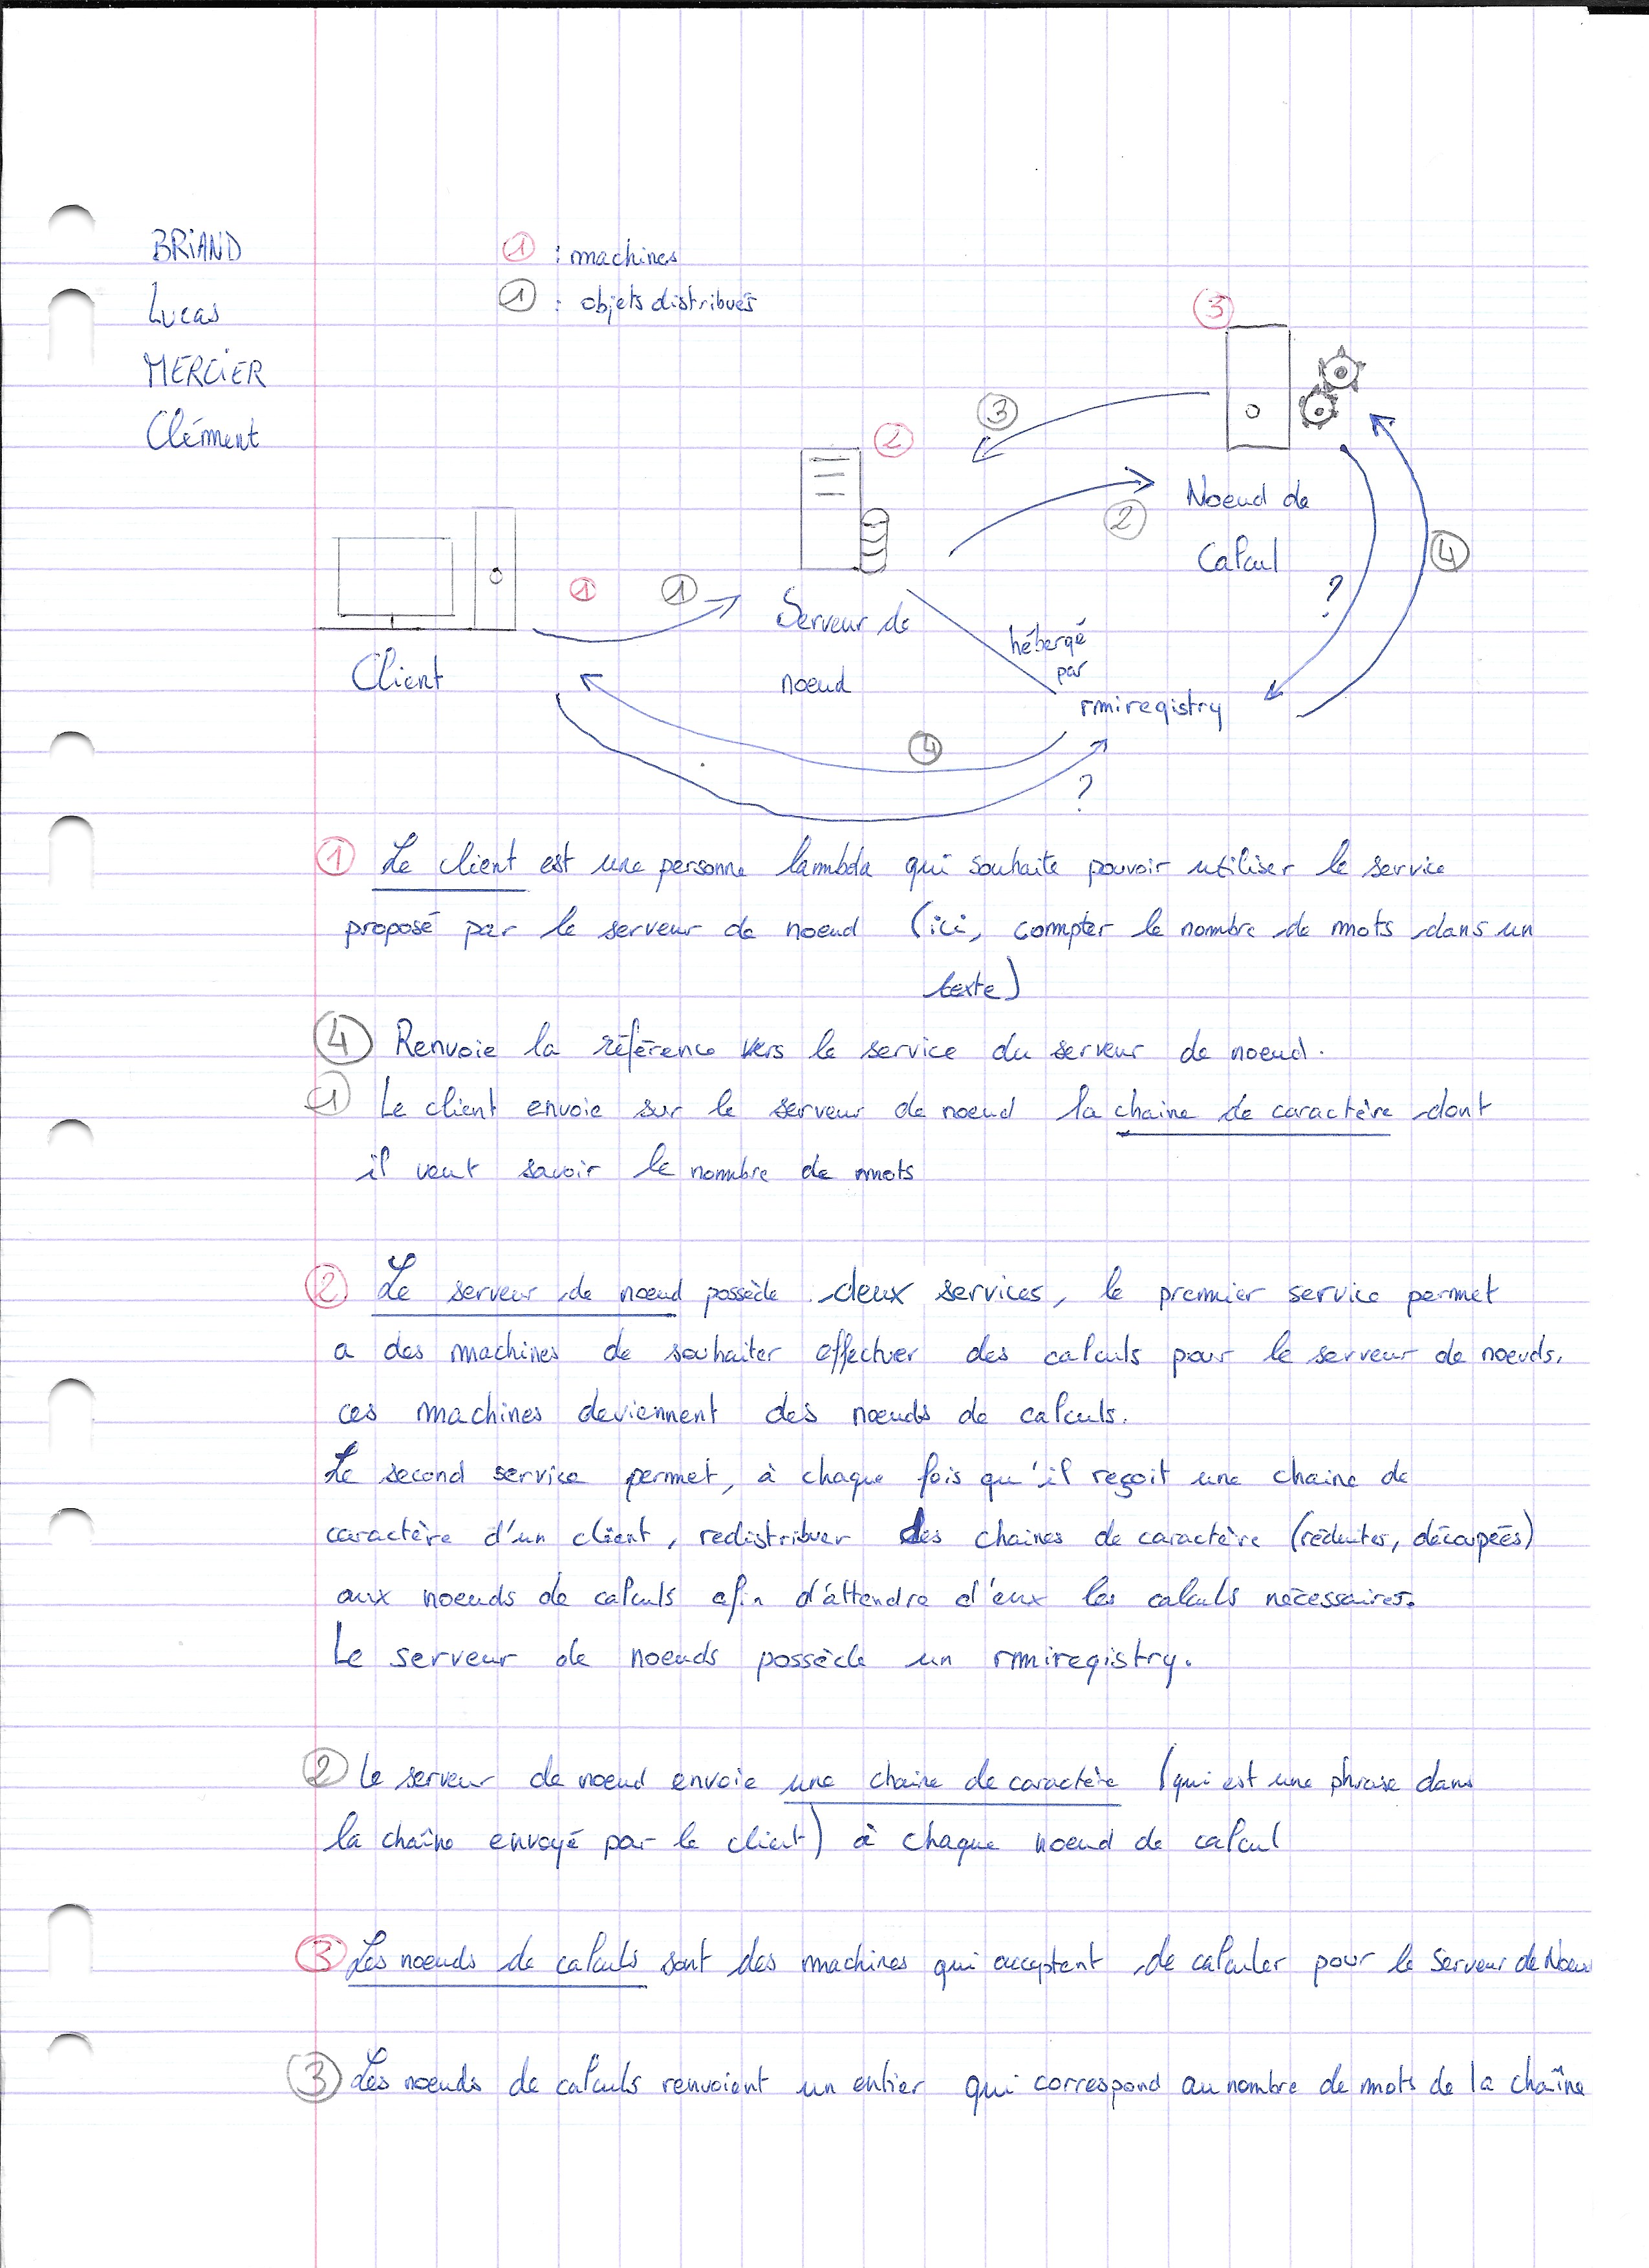 BRIAND
Lucas
MERCIER
Clément
① : machines
① : objets distribués
③
③
②
②
Noeud de
Calcul
④
?
①
①
Serveur de
noeud
hébergé
par
rmiregistry
Client
④
?
① Le client est une personne lambda qui souhaite pouvoir utiliser le service
proposé par le serveur de noeud (ici, compter le nombre de mots dans un
texte)
④ Renvoie la référence vers le service du serveur de noeud.
① Le client envoie sur le serveur de noeud la chaine de caractère dont
il veut savoir le nombre de mots
② Le serveur de noeud possède deux services, le premier service permet
a des machines de souhaiter effectuer des calculs pour le serveur de noeuds,
ces machines deviennent des noeuds de calculs.
Le second service permet, à chaque fois qu'il reçoit une chaine de
caractère d'un client, redistribuer des chaines de caractère (réduites, découpées)
aux noeuds de calculs afin d'attendre d'eux les calculs nécessaires.
Le serveur de noeuds possède un rmiregistry.
② Le serveur de noeud envoie une chaine de caractère (qui est une phrase dans
la chaîne envoyé par le client) à chaque noeud de calcul
③ Les noeuds de calculs sont des machines qui acceptent de calculer pour le Serveur de Noeu
③ Les noeuds de calculs renvoient un entier qui correspond au nombre de mots de la chaîne